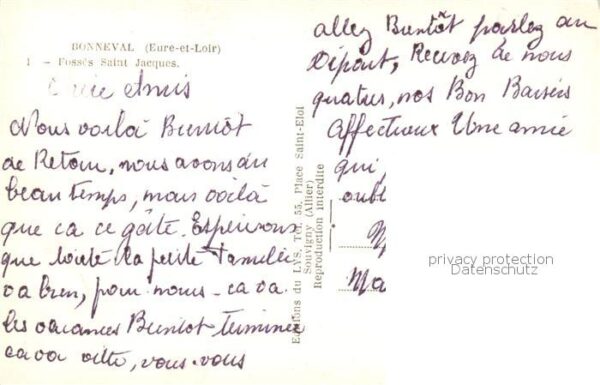 BONNEVAL (Eure-et-Loir)
1 - Fossés Saint Jacques.
amis
Nous voilà Bientôt
de Retour, nous avons du
beau temps, mais voilà
que ca ce gâte. Espérisons
que toute la petite famille
va bien, pour nous - ca va
les vacances Bientot terminée
cava vitte, vous-vous
Editions du LYS, Tél. 55, Place Saint-Eloi
Souvigny (Allier)
Reproduction interdite
allez Bientôt parlez au
Départ, Recevez de nous
quatres, nos Bon Baisers
Affectueux Une amie
qui,
oubl
M
Ma
privacy protection
Datenschutz